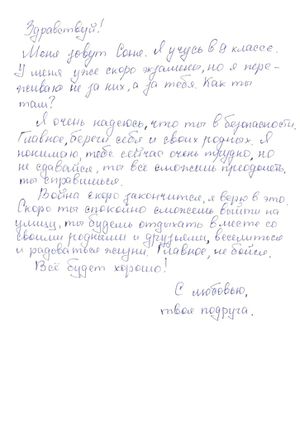 Здравствуй!
Меня зовут Соня. Я учусь в 9 классе.
У меня уже скоро экзамены, но я пере-
живаю не за них, а за тебя. Как ты
там?
Я очень надеюсь, что ты в безопасности.
Главное, береги себя и своих родных. Я
понимаю, тебе сейчас очень трудно, но
не сдавайся, ты все сможешь преодолеть,
ты справишься.
Война скоро закончится, я верю в это.
Скоро ты спокойно сможешь выйти на
улицу, ты будешь отдыхать вместе со
своими родными и друзьями, веселиться
и радоваться жизни. Главное, не бойся.
Всё будет хорошо!
С любовью,
твоя подруга.